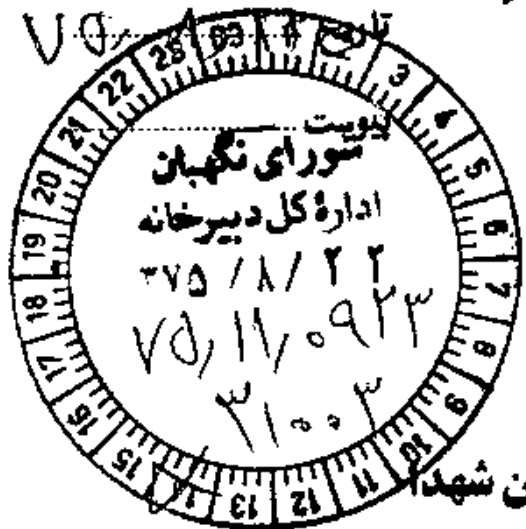 تاریخ
پیوست
شورای نگهبان
ادارهٔ کل دبیرخانه
۳۷۵ / ۸ / ۲۲
۷۵٫۱۱٫۰۹۲۳
۳۱۰۰۳
3 4 5 6 7 8 9 10 11 12 13 15 16 17 18 19 20 21 22
ن شهدا